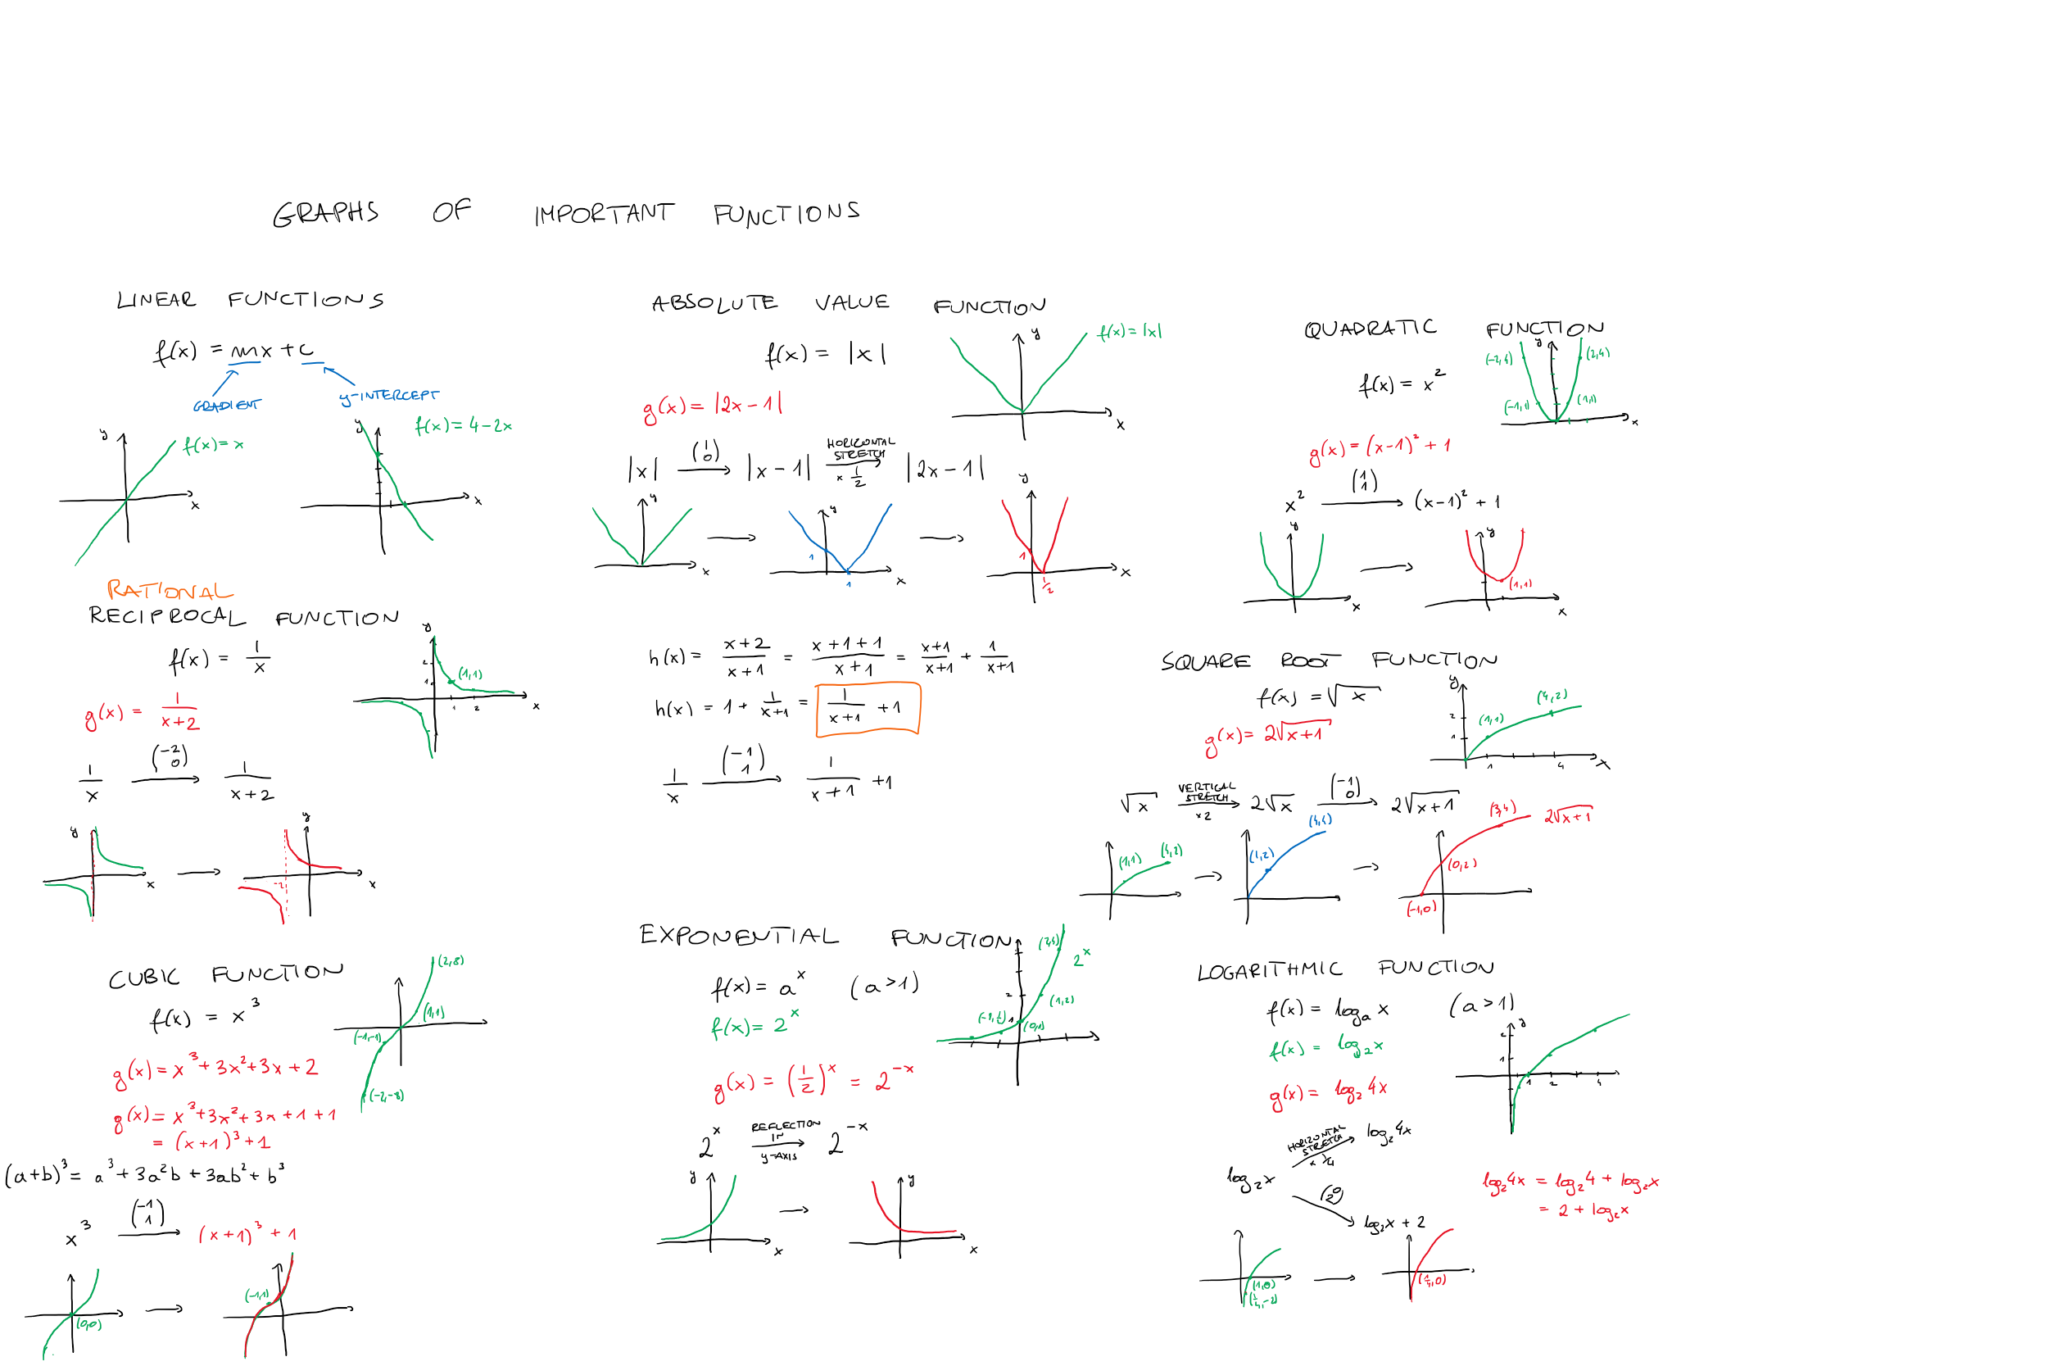 GRAPHS OF IMPORTANT FUNCTIONS
LINEAR FUNCTIONS
f(x) = mx + c
GRADIENT
y-INTERCEPT
y
f(x) = x
x
y
f(x) = 4 - 2x
x
RATIONAL
RECIPROCAL FUNCTION
f(x) = 1/x
y
2
1
(1,1)
1 2
x
g(x) = 1/(x+2)
1/x (-2 0) → 1/(x+2)
y
x
→
y
-2
x
CUBIC FUNCTION
f(x) = x³
(2,8)
(1,1)
(-1,-1)
(-2,-8)
g(x) = x³ + 3x² + 3x + 2
g(x) = x³ + 3x² + 3x + 1 + 1
= (x+1)³ + 1
(a+b)³ = a³ + 3a²b + 3ab² + b³
x³ (-1 1) → (x+1)³ + 1
(0,0)
→
(-1,1)
ABSOLUTE VALUE FUNCTION
f(x) = |x|
y
f(x) = |x|
x
g(x) = |2x - 1|
|x| (1 0) → |x - 1| HORIZONTAL STRETCH × 1/2 → |2x - 1|
y
x
→
y
1
1
x
→
y
1
1/2
x
h(x) = (x+2)/(x+1) = (x+1+1)/(x+1) = (x+1)/(x+1) + 1/(x+1)
h(x) = 1 + 1/(x+1) = 1/(x+1) + 1
1/x (-1 1) → 1/(x+1) + 1
EXPONENTIAL FUNCTION
f(x) = aˣ (a > 1)
f(x) = 2ˣ
(2,4)
2ˣ
2
(1,2)
(-1,½)
1
(0,1)
g(x) = (1/2)ˣ = 2⁻ˣ
2ˣ REFLECTION IN y-AXIS → 2⁻ˣ
y
x
→
y
x
QUADRATIC FUNCTION
f(x) = x²
y
(-2,4)
(2,4)
(-1,1)
(1,1)
x
g(x) = (x-1)² + 1
x² (1 1) → (x-1)² + 1
y
x
→
y
(1,1)
x
SQUARE ROOT FUNCTION
f(x) = √x
y
2
1
(1,1)
(4,2)
1 4
x
g(x) = 2√x+1
√x VERTICAL STRETCH ×2 → 2√x (-1 0) → 2√x+1
(1,1)
(4,2)
→
(1,2)
(4,4)
→
(3,4)
2√x+1
(0,2)
(-1,0)
LOGARITHMIC FUNCTION
f(x) = logₐ x (a > 1)
f(x) = log₂x
g(x) = log₂4x
y
2
1
1 2 4
HORIZONTAL STRETCH × 1/4
log₂4x
log₂x
(0 2)
log₂x + 2
log₂4x = log₂4 + log₂x
= 2 + log₂x
(1,0)
(¼,-2)
→
(¼,0)